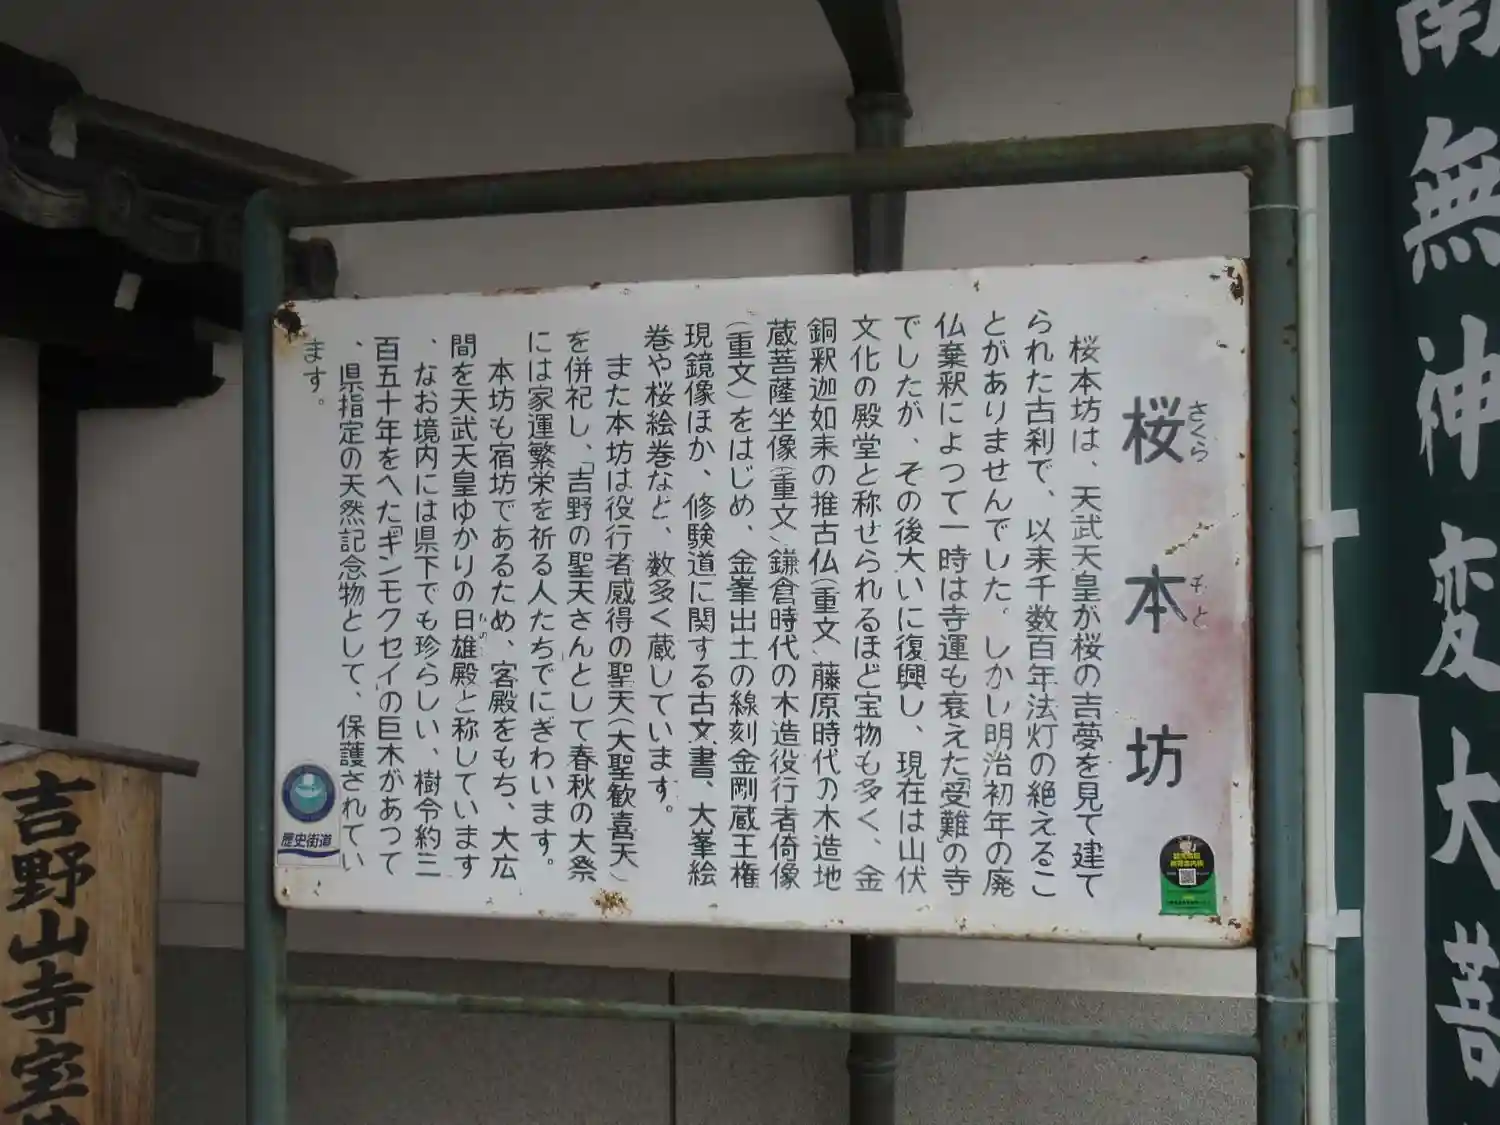 桜本坊
さくらもと
桜本坊は、天武天皇が桜の吉夢を見て建て
られた古刹で、以来千数百年法灯の絶えるこ
とがありませんでした。しかし明治初年の廃
仏棄釈によつて一時は寺運も衰えた「受難」の寺
でしたが、その後大いに復興し、現在は山伏
文化の殿堂と称せられるほど宝物も多く、金
銅釈迦如来の推古仏(重文)、藤原時代の木造地
蔵菩薩坐像(重文)、鎌倉時代の木造役行者倚像
(重文)をはじめ、金峯出土の線刻金剛蔵王権
現鏡像ほか、修験道に関する古文書、大峯絵
巻や桜絵巻など、数多く蔵しています。
また本坊は役行者感得の聖天(大聖歓喜天)
を併祀し、「吉野の聖天さん」として春秋の大祭
には家運繁栄を祈る人たちでにぎわいます。
本坊も宿坊であるため、客殿をもち、大広
間を天武天皇ゆかりの日雄殿と称しています
ひのお
、なお境内には県下でも珍らしい、樹令約三
百五十年をへた「ギンモクセイ」の巨木があって
、県指定の天然記念物として、保護されてい
ます。
歴史街道
南無神変大菩
吉野山寺宝